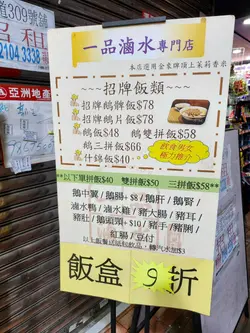 309號舖
出租
2104 3338
亞洲地產
一品滷水專門店
本店選用金象牌頂上茉莉香米
~~~招牌飯類~~~
招牌鵝髀飯$78
招牌鵝片飯$78
鵝飯$48 鵝雙拼飯$58
鵝三拼飯$66
什錦飯$40
飲食男女
極力推介
**以下單拼飯$40 雙拼$50 三拼飯$58**
鵝中翼/鵝腸+$8/鵝肝/鵝腎/
滷水鴨/滷水雞/豬大腸/豬耳/
豬肚/鵝頭頸+$10/豬手/豬脷/
紅腸/豆付
飯盒 9折